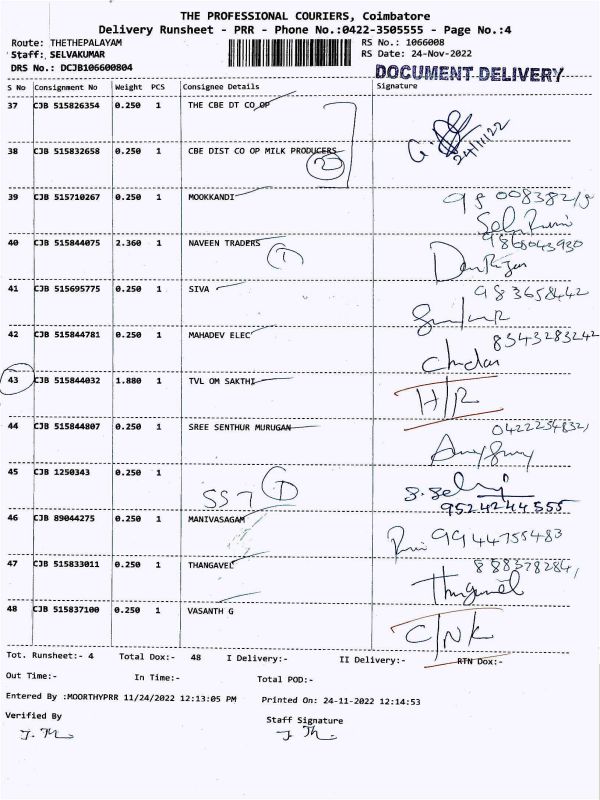 THE PROFESSIONAL COURIERS, Coimbatore
Delivery Runsheet - PRR - Phone No.:0422-3505555 - Page No.:4
Route: THETHEPALAYAM RS No.: 1066008
Staff: SELVAKUMAR RS Date: 24-Nov-2022
DRS No.: DCJB106600804 DOCUMENT DELIVERY
S No Consignment No Weight PCS Consignee Details Signature
37 CJB 515826354 0.250 1 THE CBE DT CO OP
24/11/22
38 CJB 515832658 0.250 1 CBE DIST CO OP MILK PRODUCERS
2
39 CJB 515710267 0.250 1 MOOKKANDI
40 CJB 515844075 2.360 1 NAVEEN TRADERS 9868043930
1
41 CJB 515695775 0.250 1 SIVA 983658442
42 CJB 515844781 0.250 1 MAHADEV ELEC 8543283242
43 CJB 515844032 1.880 1 TVL OM SAKTHI H/R
44 CJB 515844807 0.250 1 SREE SENTHUR MURUGAN
45 CJB 1250343 0.250 1
SS7 1 9524244555
46 CJB 89044275 0.250 1 MANIVASAGAM 9944755483
47 CJB 515833011 0.250 1 THANGAVEL
Thangavel
48 CJB 515837100 0.250 1 VASANTH G C/NK
Tot. Runsheet:- 4 Total Dox:- 48 I Delivery:- II Delivery:- RTN Dox:-
Out Time:- In Time:- Total POD:-
Entered By :MOORTHYPRR 11/24/2022 12:13:05 PM Printed On: 24-11-2022 12:14:53
Verified By Staff Signature